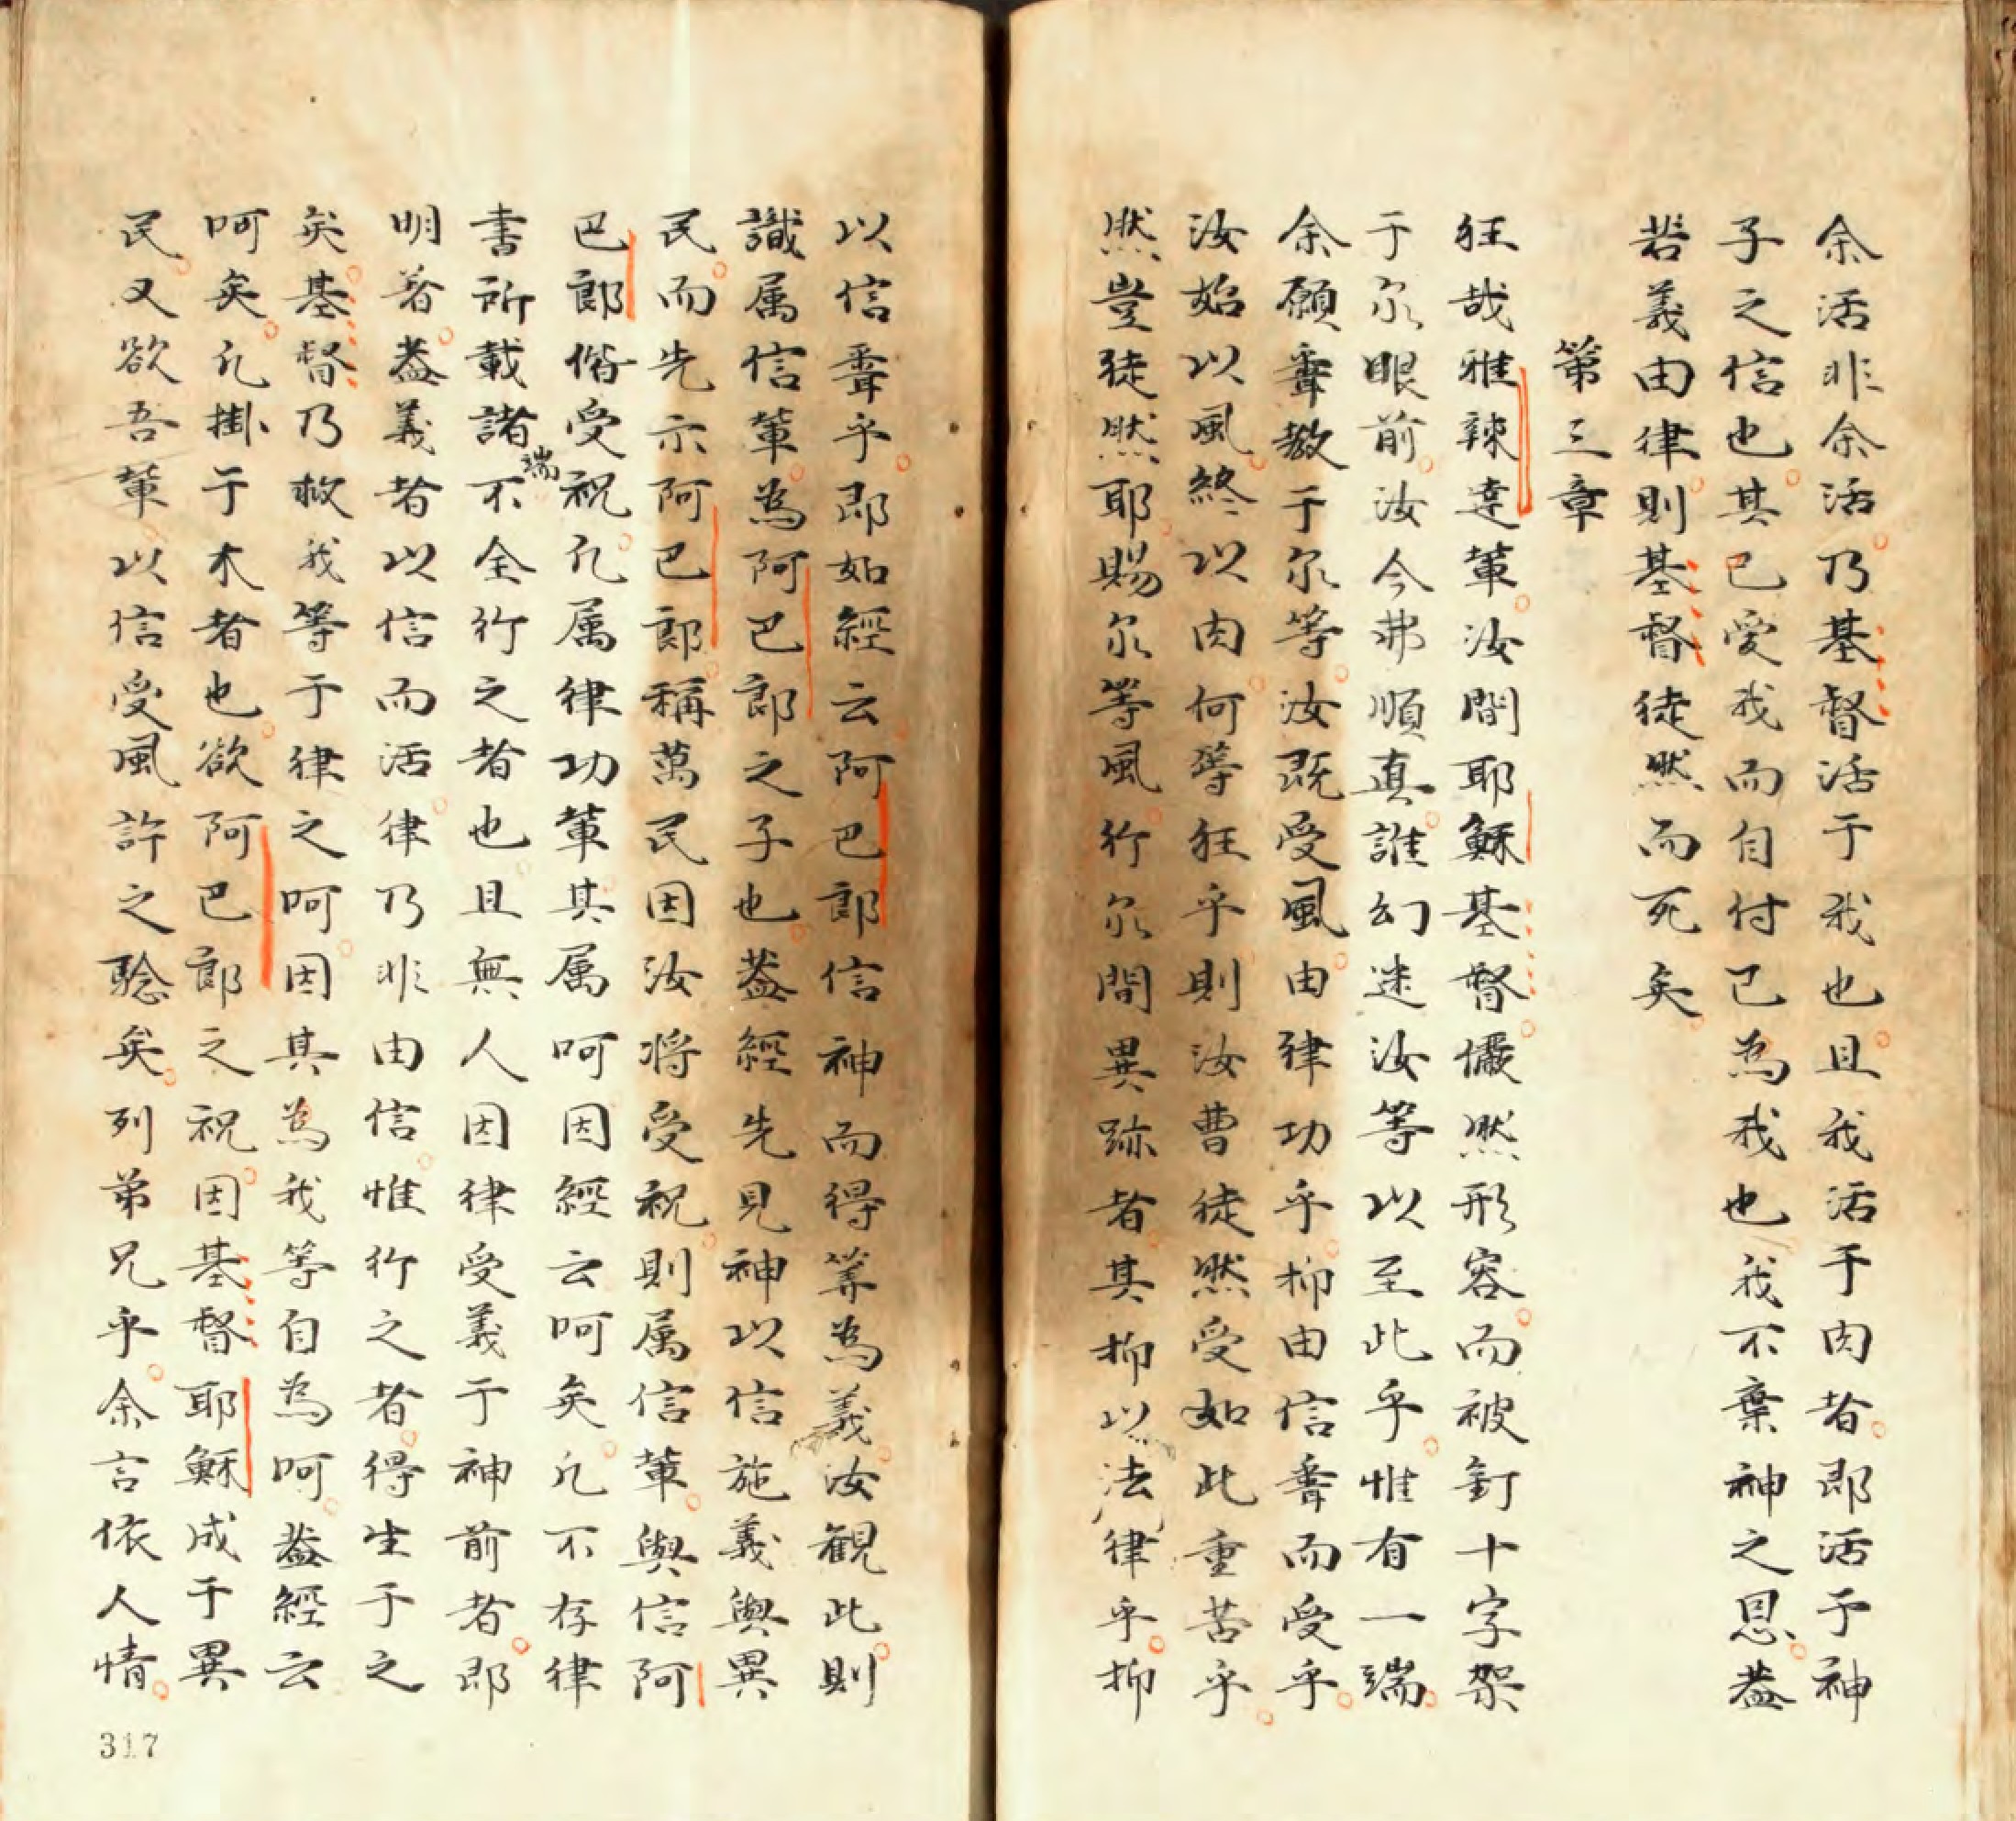 余活非余活乃基督活于我也且我活于肉者即活于神
子之信也其已愛我而自付己為我也我不棄神之恩蓋
若義由律則基督徒然而死矣
第三章
狂哉雅辣達輩汝間耶穌基督儼然形容而被釘十字架
于尔眼前汝今弗順真誰幻迷汝等以至此乎惟有一端
余願聽教于尔等汝既受風由律功乎抑由信聽而受乎
汝始以風終以肉何等狂乎則汝曹徒然受如此重苦乎
然豈徒然耶賜尔等風行尔間異跡者其抑以法律乎抑
以信聽乎即如經云阿巴郎信神而得筭為義汝観此則
識属信輩為阿巴郎之子也蓋經先見神以信施義與異
民而先示阿巴郎稱萬民因汝将受祝則属信輩與信阿
巴郎偕受祝凢属律功輩其属呵因經云呵矣凢不存律
書所載諸端不全行之者也且無人因律受義于神前者即
明著蓋義者以信而活律乃非由信惟行之者得生于之
矣基督乃救我等于律之呵因其為我等自為呵蓋經云
呵矣凢掛于木者也欲阿巴郎之祝因基督耶穌成于異
民又欲吾輩以信受風許之驗矣列弟兄乎余言依人情
317